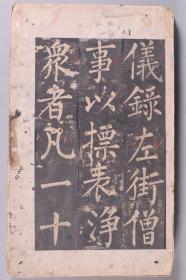 儀錄左街僧
事以摽表淨
衆者凡一十